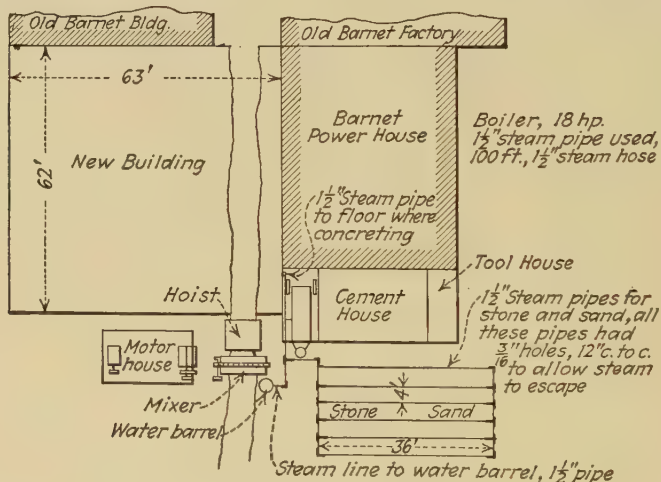 Old Barnet Bldg.
Old Barnet Factory
63'
62'
New Building
Barnet
Power House
Boiler, 18 hp.
1½" steam pipe used,
100 ft., 1½" steam hose
1½" Steam pipe
to floor where
concreting
Hoist
Cement
House
Tool House
1½" Steam pipes for
stone and sand, all
these pipes had
3/16" holes, 12" c. to c.
to allow steam
to escape
Motor
house
Mixer
Water barrel
4'
Stone Sand
36'
Steam line to water barrel, 1½" pipe